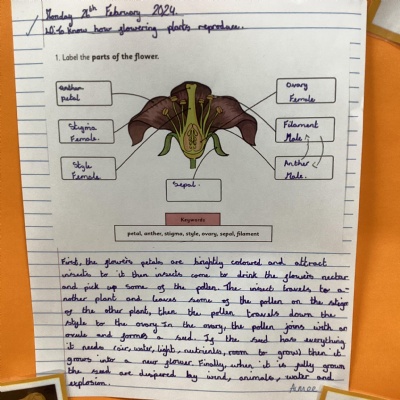 Monday 26th February 2024.
WI: to know how flowering plants reproduce.
1. Label the parts of the flower.
anther
petal
Ovary
Female
Stigma
Female.
Filament
Male
Style
Female
Anther
Male.
Sepal.
Keywords
petal, anther, stigma, style, ovary, sepal, filament
First, the flowers petals are brightly coloured and attract
insects to it then insects come to drink the flowers nectar
and pick up some of the pollen. The insect travels to a-
nother plant and leaves some of the pollen on the stigma
of the other plant, then the pollen travels down the
style to the ovary. In the ovary, the pollen joins with an
ovule and forms a seed. If the seed has everything
it needs (air, water, light, nutrients, room to grow) then it
grows into a new flower. Finally, when it is fully grown
the seed are dispersed by wind, animals, water and
explosion.